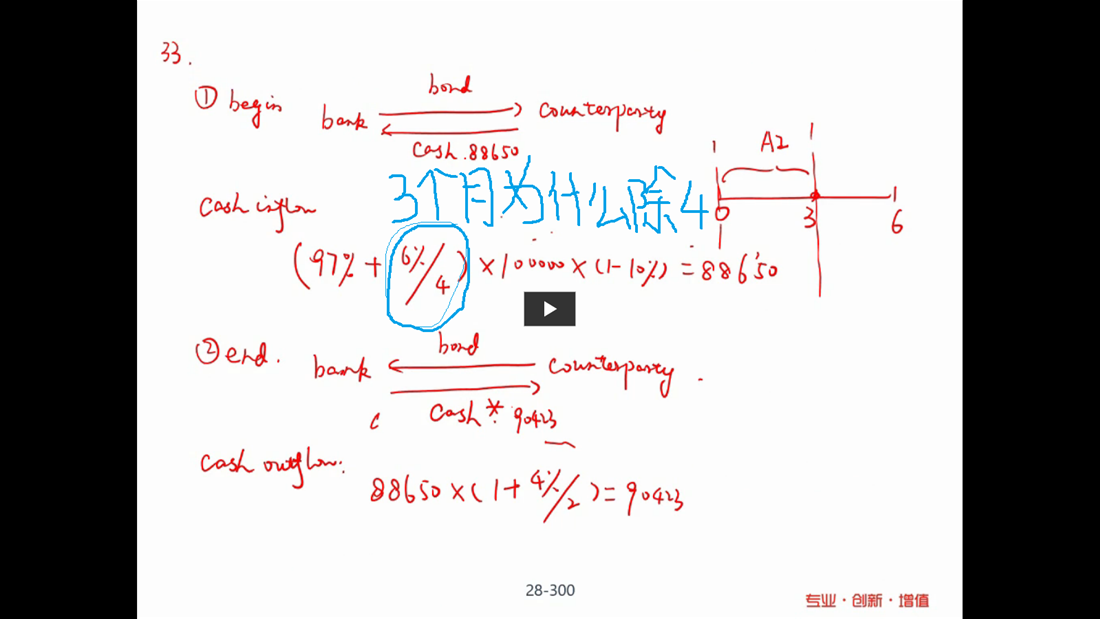 33.
① begin
bond
bank
counterparty
cash.88650
A2
3个月为什么除4
0 3 6
cash inflow
(97% + 6%/4) × 100000 × (1-10%) = 88650
② end.
bond
bank
counterparty.
cash* 90423
cash outflow:
88650 × (1 + 4%/2) = 90423
28-300
专业·创新·增值